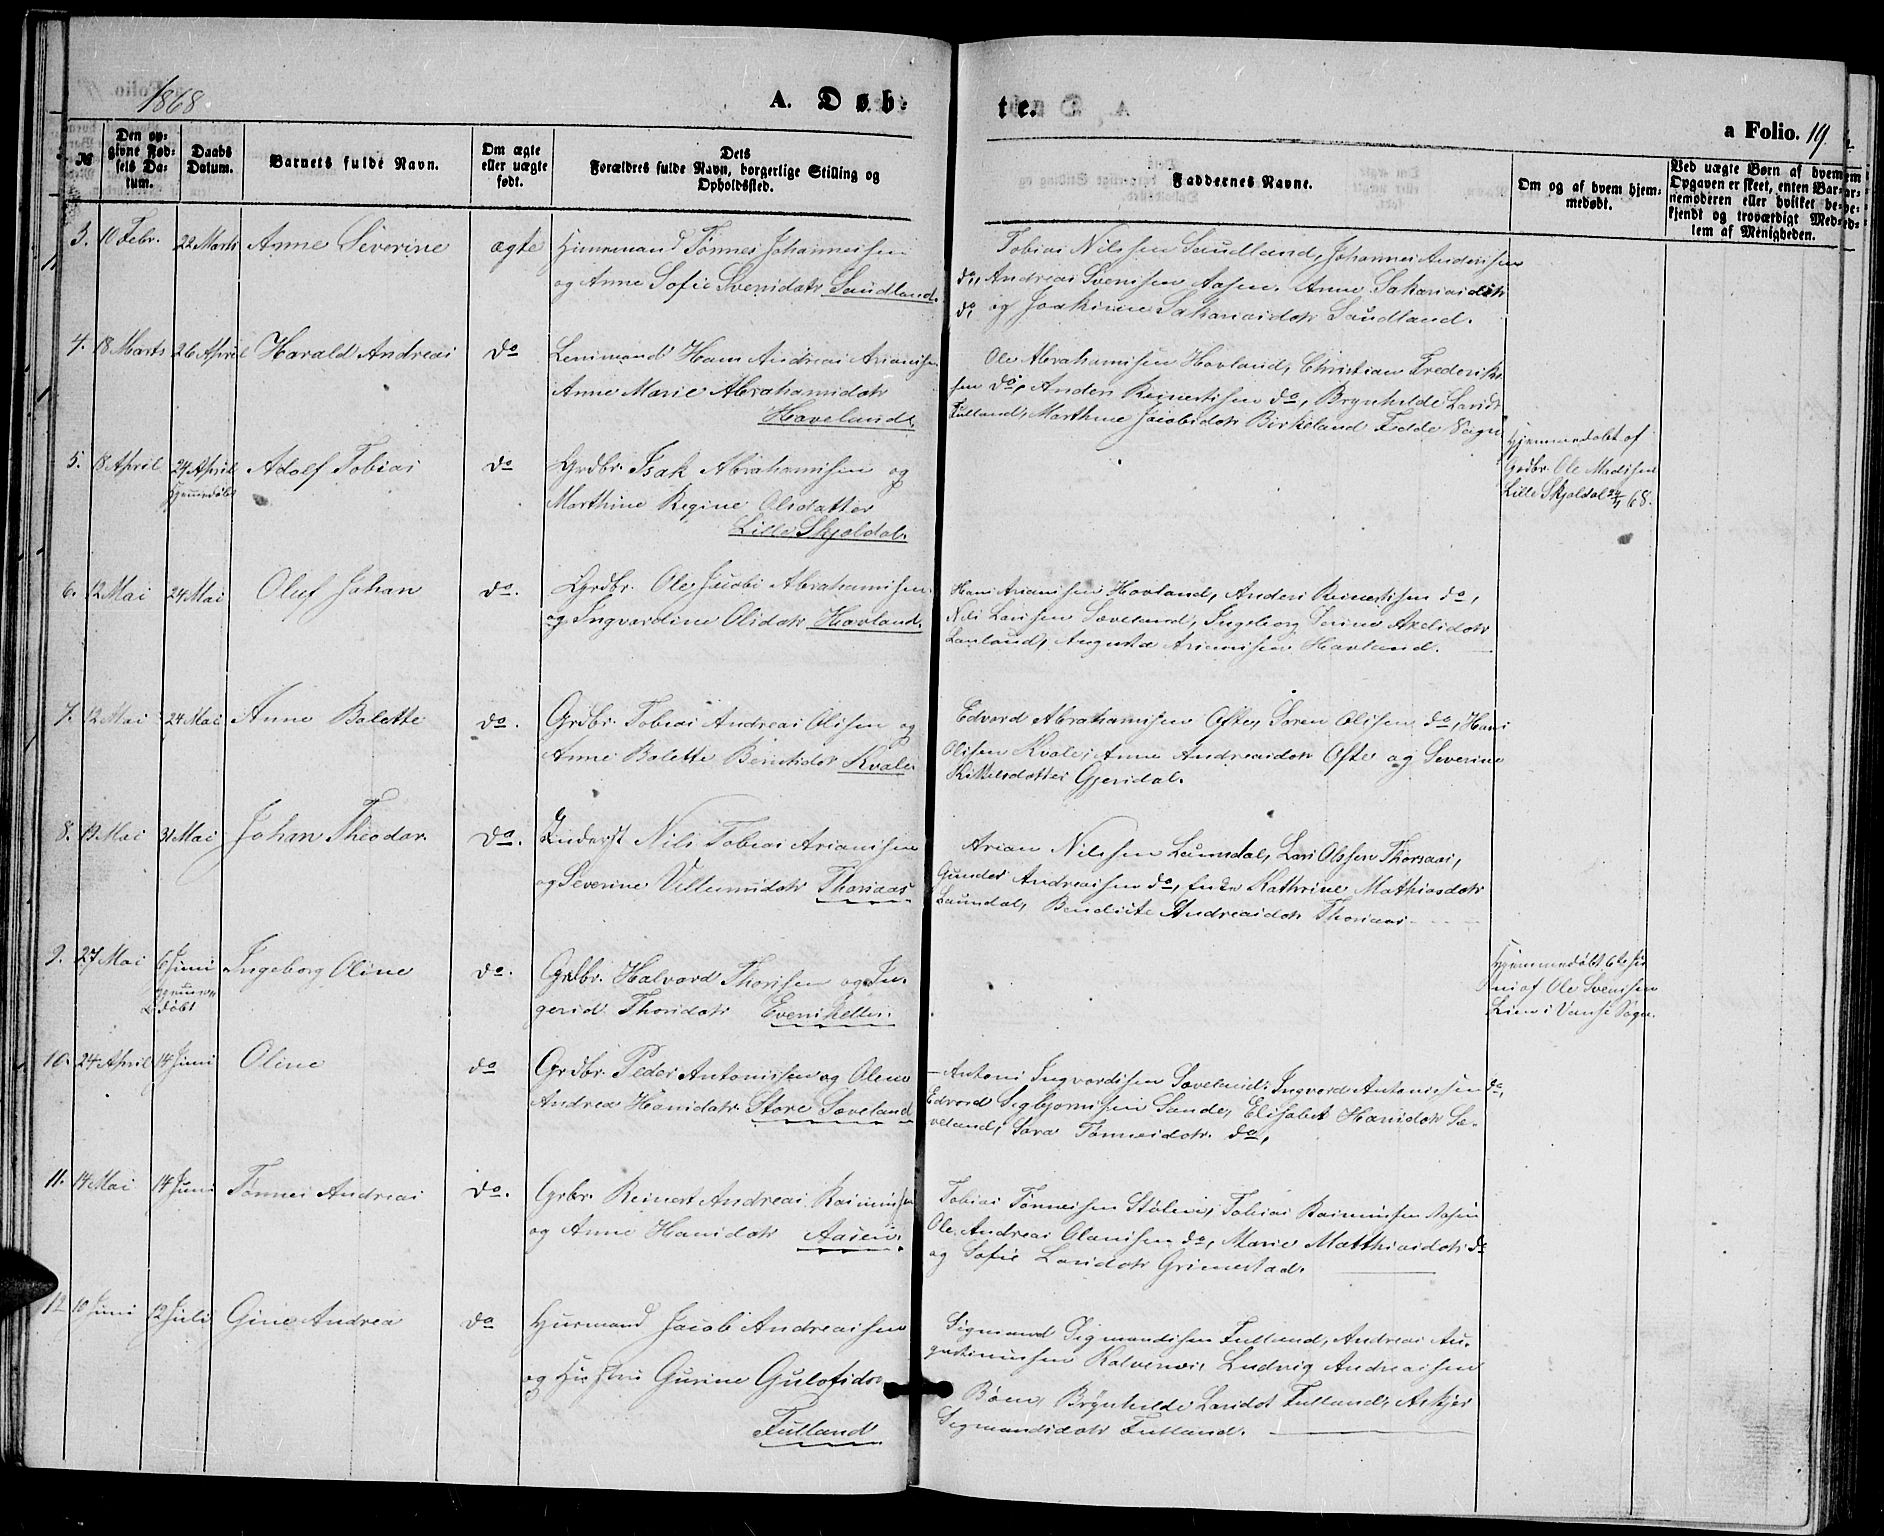 1868
A. Døb-
te.
a Folio. 19.
№
Den op-
givne Fød-
sels Da-
tum.
Daabs
Datum.
Barnets fulde Navn.
Om ægte
eller uægte
født.
Dets
Forældres fulde Navn, borgerlige Stilling og
Opholdssted.
Faddernes Navne.
Om og af hvem hjem-
medøbt.
Ved uægte Børn af hvem
Opgaven er skeet, enten Bar-
nemoderen eller hvilket be-
kjendt og troværdigt Med-
lem af Menigheden.
3. 10 Febr. 22 Marts Anne Severine ægte
Huusmand Tønnes Johannessen
og Anne Sofie Svensdatr Saudland.
Tobias Nilssen Saudland, Johannes Anderssen
do, Andreas Svenssen Aasen. Anne Sakariasdatr
do, og Joakime Sakariasdatr Saudland.
4. 18 Marts 26 April Harald Andreas do
Leiemand Hans Andreas Arianssen
Anne Marie Abrahamsdatr
Haveland.
Ole Abrahamssen Hovland, Christian Frederiks-
sen do, Anders Reinertssen do, Brynhilde Larsdt
Fulland, Marthine Jacobsdatr Birkeland Fedde Sogn
5. 8 April 24 April Adolf Tobias do
Hjemmedøbt
Grdbr. Isak Abrahamssen og
Marthine Regine Olsdatter
Lille Skjoldal.
Hjemmedøbt af
Grdbr. Ole Madssen
Lille Skjoldal 24/4 68.
6. 12 Mai 24 Mai Oluf Johan do.
Grdbr. Ole Jacobs Abrahamssen
og Ingvardine Olsdatr Havland.
Hans Arianssen Hovland, Anders Reinertssen do,
Nils Larssen Sæveland, Ingeborg Serine Axelsdatr
Lauland, Augusta Arianssen Havland.
7. 12 Mai 24 Mai Anne Bolette do.
Grdbr. Tobias Andreas Olssen og
Anne Bolette Berntsdtr Kvale.
Edvard Abrahamssen Ofte, Søren Olssen do, Hans
Olssen Kvale, Anne Andreasdatr Ofte og Severine
Kittelsdatter Gjersdal.
8. 19 Mai 31 Mai Johan Theodor. do.
Inderst Nils Tobias Arianssen
og Severine Villumsdatr Thorsaas
Arian Nilssen Laumdal, Lars Olssen Thorsaas,
Gunder Andreassen do, Enke Kathrine Mathiasdatr
Laumdal, Bendicte Andreasdatr Thorsaas
9. 27 Mai 6 Juni Ingeborg Oline do.
hjemme-
døbt
Grdbr. Halvord Thorssen og In-
gerid Thorsdatr Evenskellei.
Hjemmedøbt 6te Ju-
ni af Ole Svenssen
Lien i Vanse Sogn.
10. 24 April 14 Juni Oline do
Grdbr. Peder Antonissen og Olene
Andrea Hansdatr. Store Sæveland
Antoni Ingvardssen Sæveland. Ingvard Antonissen do,
Edvard Sigbjørnssen Sande, Elisabet Hansdatr Sæ-
veland, Sara Tønnesdatr. do,
11. 14 Mai 14 Juni Tønnes Andreas do.
Grbr. Reinert Andreas Rasmussen
og Anne Hansdatr Aasen.
Tobias Tønnessen Stølen, Tobias Rasmussen Aasen
Ole Andreas Olaussen do, Marie Matthiasdatr do
og Sofie Larsdatr Grimestad.
12 10 Juni 12 Juli Gine Andrea do
Husmand Jacob Andreassen
og Hustru Gurine Gulofsdr
Fulland
Sigmand Sigmandssen Fulland, Andreas Au-
gustinussen Kalvenes, Ludvig Andreassen
Bøen, Brynhilde Larsdt Fulland, Askjer
Sigmandsdatr Fulland.